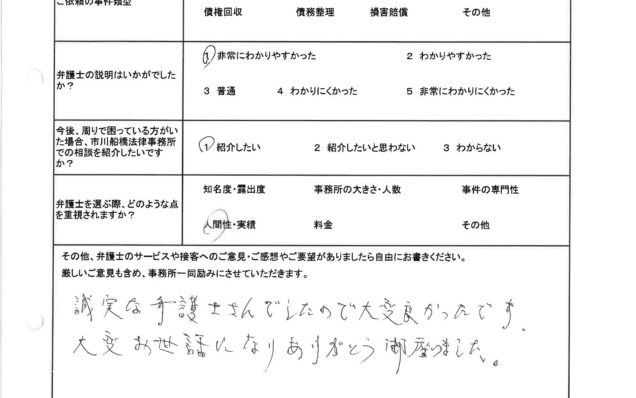 ご依頼の事件類型
債権回収 債務整理 損害賠償 その他
弁護士の説明はいかがでした
か?
1 非常にわかりやすかった 2 わかりやすかった
3 普通 4 わかりにくかった 5 非常にわかりにくかった
今後、周りで困っている方がい
た場合、市川船橋法律事務所
での相談を紹介したいです
か?
1 紹介したい 2 紹介したいと思わない 3 わからない
弁護士を選ぶ際、どのような点
を重視されますか?
知名度・露出度 事務所の大きさ・人数 事件の専門性
人間性・実績 料金 その他
その他、弁護士のサービスや接客へのご意見・ご感想やご要望がありましたら自由にお書きください。
厳しいご意見も含め、事務所一同励みにさせていただきます。
誠実な弁護士さんでしたので大変良かったです。
大変お世話になりありがとう御座いました。